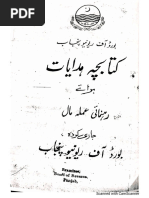 بورڈ آف ریونیو پنجاب
کتابچہ ہدایات
برائے
رہنمائی عملہ مال
جاری کردہ
بورڈ آف ریونیو پنجاب
Board of Revenue,
Punjab.
Scanned with CamScanner